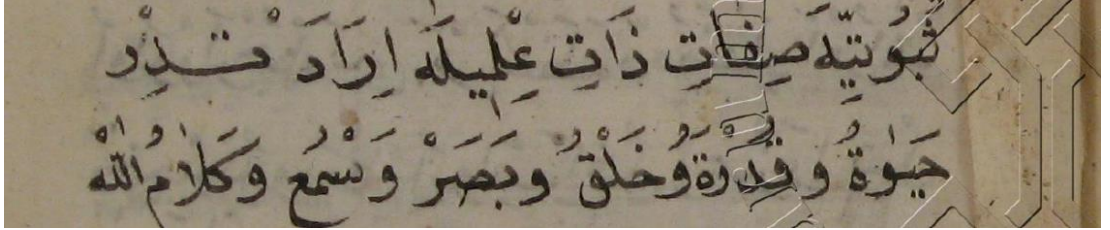 ثُبُوتِيَّه صِفَاتِ ذَاتِ عِلْمِيلَه اِرَادَتْدِرْ
حَيٰوةُ و قُدْرَةُ وُخَلْقُ وبَصَرْ وَسْمُع وَكَلَامُ اللّٰه